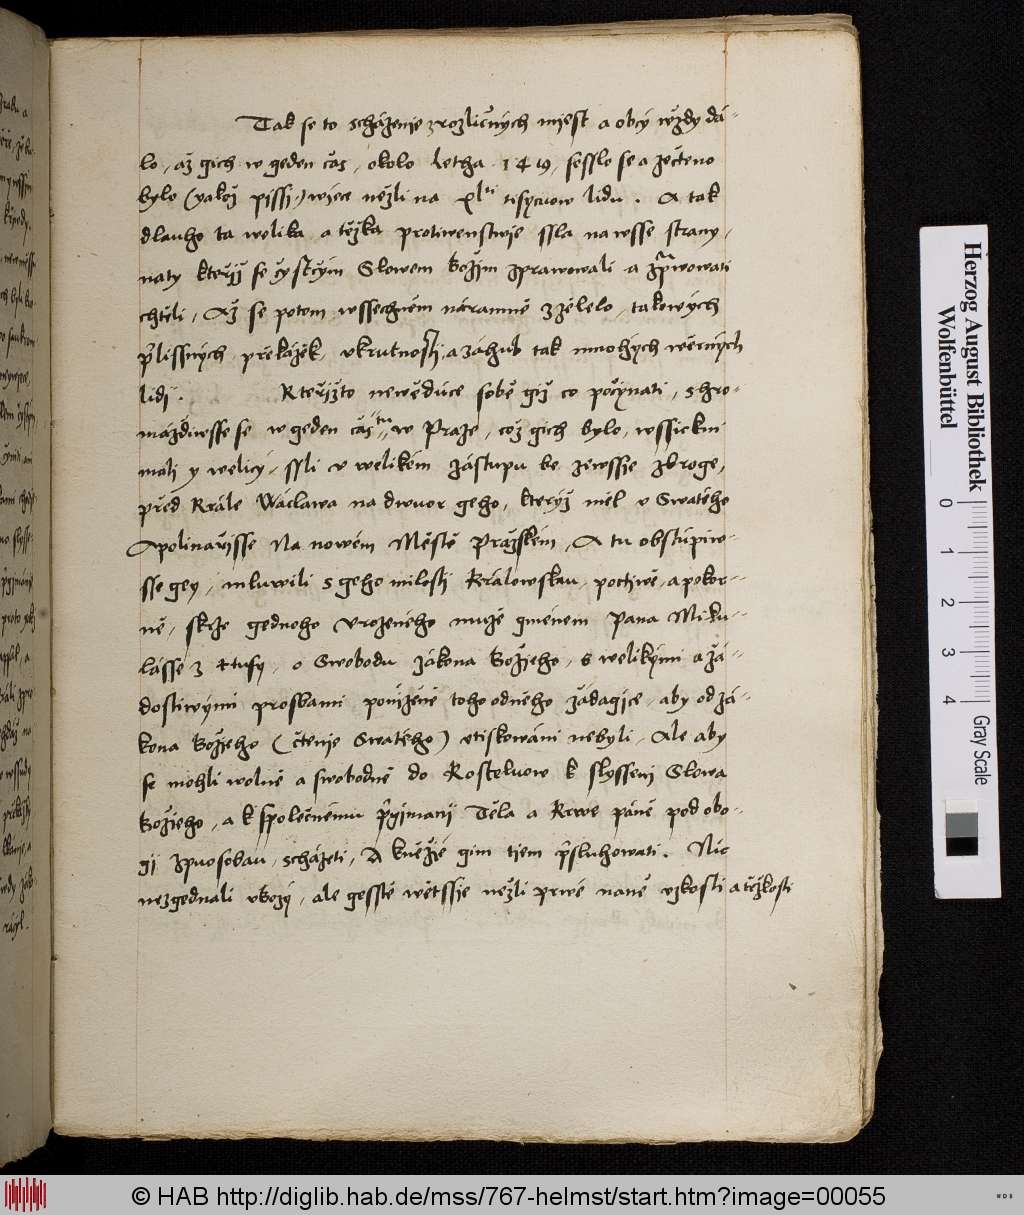 Tak se to scházenje z rozlicžných mjest a obcý wždy dá-
lo, až gich w geden čas, okolo Letha 1419, sesslo se a zečteno
bylo (yakož pissj) wjece nežli na xl^ti tisycuow lidu. A tak
dlauho ta welika a těžka protiwenstwje ssla na wsse strany,
na ty kteřjž se čystčým Slowem Božjm zprawowali a zprawowati
chtěli, Až se potom wssechněm náramně zželelo, takowých
přlissných překážěk, vkrutnostj, a záhub tak mnohých wěrných
lidj. Kteřjžto newěduce sobě giž co počýnati, shro-
máždiwsse se w geden čas tu w Praze, což gich bylo, wssickni
malj y welicý, ssli v welikém zástupu ke zewssje zbroge,
před Krále Wáclawa na dwuor geho, kterýž měl v Swatého
Apolinářisse Na nowém Městě Pražském, A tu obstúpiw-
sse gey, mluwili s geho milostj Králowskau, poctiwě, a pokor-
ně, skrze gednoho Vrozeného muže gménem Pana Miku-
lásse z Husy, o Swobodu zákona Božjeho, s welikými a žá-
dostiwými prosbami ponjženě toho odněho žádagjce, aby od zá-
kona Božjeho (čtenje Swatého) vtiskowáni nebyli, Ale aby
se mohli wolně a swobodně do Kosteluow k slyssenj Slowa
Božjeho, a k společnému přigjmanj Těla a Krwe páně pod obo-
gj zpuosobau, scházeti, A kněžjé gim tjem přsluhowati. Nic
nezgednali vkozý, ale gesstě wětssje nežli prwé naně vzkosti a těžkosti
Herzog August Bibliothek
Wolfenbüttel
0 1 2 3 4
Gray Scale
© HAB http://diglib.hab.de/mss/767-helmst/start.htm?image=00055
WDB